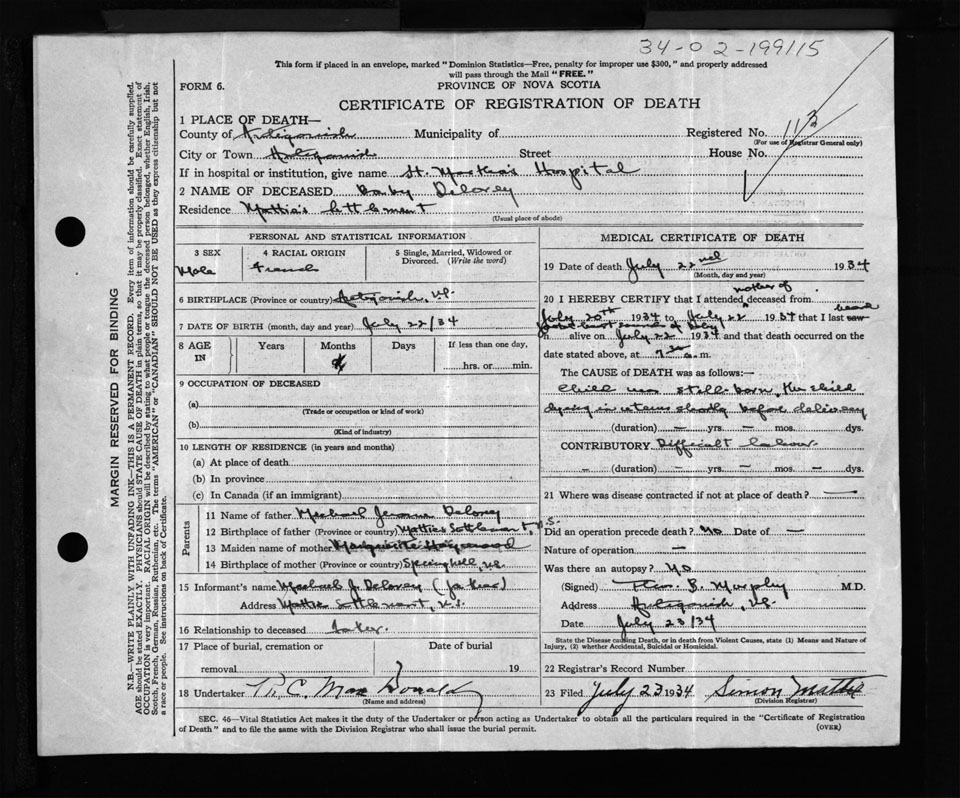 34-02-199115
This form if placed in an envelope, marked "Dominion Statistics—Free, penalty for improper use $300," and properly addressed
will pass through the Mail "FREE."
FORM 6.
PROVINCE OF NOVA SCOTIA
CERTIFICATE OF REGISTRATION OF DEATH
1 PLACE OF DEATH—
County of Antigonish Municipality of Registered No. 113
(For use of Registrar General only)
City or Town Antigonish Street House No.
If in hospital or institution, give name St. Martha's Hospital
2 NAME OF DECEASED Baby Delorey
Residence Mattie's Settlement
(Usual place of abode)
PERSONAL AND STATISTICAL INFORMATION
3 SEX 4 RACIAL ORIGIN 5 Single, Married, Widowed or
Divorced. (Write the word)
Male French
6 BIRTHPLACE (Province or country) Antigonish, N.S.
7 DATE OF BIRTH (month, day and year) July 22/34
8 AGE IN Years Months Days If less than one day,
hrs. or min.
9 OCCUPATION OF DECEASED
(a)
(Trade or occupation or kind of work)
(b)
(Kind of industry)
10 LENGTH OF RESIDENCE (in years and months)
(a) At place of death
(b) In province
(c) In Canada (if an immigrant)
Parents
11 Name of father Michael Jerome Delorey
12 Birthplace of father (Province or country) Mattie Settlement, N.S.
13 Maiden name of mother Marguerite
14 Birthplace of mother (Province or country) Springhill, N.S.
15 Informant's name Michael J. Delorey (father)
Address Mattie Settlement, N.S.
16 Relationship to deceased father
17 Place of burial, cremation or Date of burial
removal ? 19
18 Undertaker R. C. MacDonald
(Name and address)
MEDICAL CERTIFICATE OF DEATH
19 Date of death July 22nd 1934
(Month, day and year)
mother of
20 I HEREBY CERTIFY that I attended deceased from
July 20th 1934 to July 22 1934 that I last saw heard
foetal heart sounds of baby
h alive on July 22 1934 and that death occurred on the
date stated above, at 7 a.m.
The CAUSE of DEATH was as follows:—
Child was still-born, the child
dying in uterus shortly before delivery
(duration) — yrs. — mos. — dys.
CONTRIBUTORY Difficult labour.
— (duration) — yrs. — mos. — dys.
21 Where was disease contracted if not at place of death? —
Did an operation precede death? No Date of —
Nature of operation —
Was there an autopsy? No
(Signed) B. Murphy M.D.
Address Antigonish, N.S.
Date July 23/34
State the Disease causing Death, or in death from Violent Causes, state (1) Means and Nature of
Injury, (2) whether Accidental, Suicidal or Homicidal.
22 Registrar's Record Number
23 Filed July 23 1934 Simon Mattie
(Division Registrar)
SEC. 46—Vital Statistics Act makes it the duty of the Undertaker or person acting as Undertaker to obtain all the particulars required in the "Certificate of Registration
of Death" and to file the same with the Division Registrar who shall issue the burial permit.
(OVER)
MARGIN RESERVED FOR BINDING
N.B.—WRITE PLAINLY WITH UNFADING INK—THIS IS A PERMANENT RECORD. Every item of information should be carefully supplied.
AGE should be stated EXACTLY. PHYSICIANS should STATE CAUSE OF DEATH in plain terms, so that it may be properly classified. Exact statement of
OCCUPATION is very important. RACIAL ORIGIN will be described by stating to what people or tongue the deceased person belonged, whether English, Irish,
Scotch, French, German, Russian, Ruthenian, etc. The terms "AMERICAN" or "CANADIAN" SHOULD NOT BE USED as they express citizenship but not
a race or people. See instructions on back of Certificate.